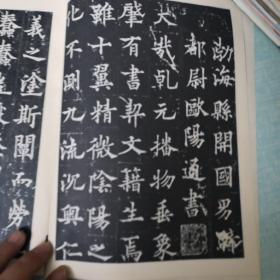 渤海縣開國男
都尉歐陽通書
大哉乹元播物垂象
肇有書契文籍生焉
雖十翼精微陰陽之
化不測九流沉奥仁
義之塗斯闡而勞